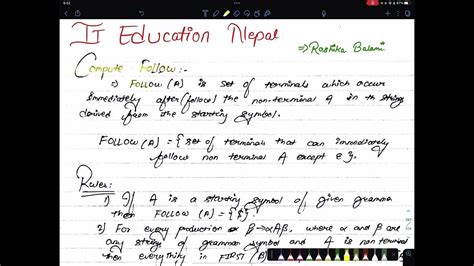 IT Education Nepal
⇒ Rashika Balami
Compute Follow:-
⇒ FOLLOW (A) is set of terminals which occur
immediately after (follow) the non-terminal A in the string
derived from the starting symbol.
FOLLOW (A) = { set of terminals that can immediately
follow non terminal A except e }.
Rules:-
1) If A is a starting symbol of given gramma
then FOLLOW (A) = { $ }
2) For every production B → αAβ, where α and β are
any strings of grammar symbol and A is non terminal
then everything in FIRST (β)